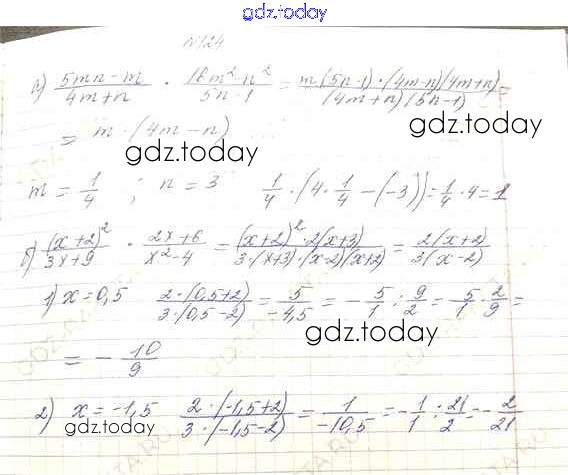 gdz.today
N124
а) (5mn-m)/(4m+n) · (16m²-n²)/(5n-1) = (m(5n-1)·(4m-n)(4m+n))/((4m+n)(5n-1)) =
= m·(4m-n)
gdz.today gdz.today
m = 1/4 ; n = 3 1/4 · (4 · 1/4 - (-3)) = 1/4 · 4 = 1
б) (x+2)²/(3x+9) · (2x+6)/(x²-4) = ((x+2)²·2(x+3))/(3·(x+3)·(x-2)(x+2)) = 2(x+2)/3(x-2)
1) x = 0,5 (2·(0,5+2))/(3·(0,5-2)) = 5/-4,5 = - 5/1 : 9/2 = - 5/1 · 2/9 =
gdz.today
= - 10/9
2) x = -1,5 (2·(-1,5+2))/(3·(-1,5-2)) = 1/-10,5 = - 1/1 : 21/2 = - 2/21
gdz.today gdz.today